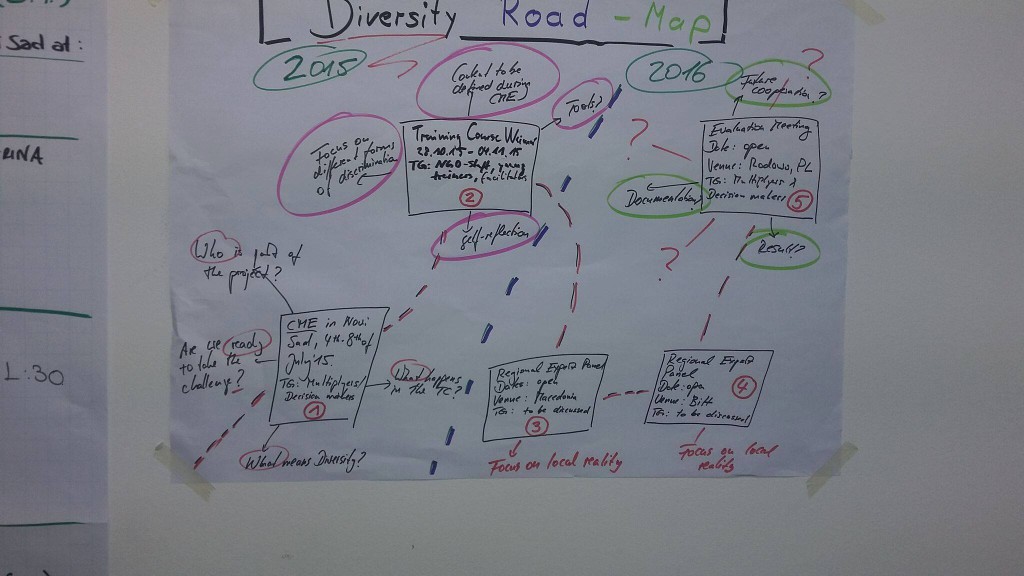 Sad at:
RINA
L:30
Diversity Road - Map
2015
2016
Content to be
defined during
CME
Tools?
Future
cooperation?
?
Focus on
different forms
of discrimination
Training Course Weimar
TG: NGO-staff, young
trainers, facilitators
2
self-reflection
?
Evaluation Meeting
Date: open
Venue: Rodowo, PL
TG: Multiplyers &
Decision makers
5
Documentation
Result?
?
Who is part of
the project?
CME in Novi
Sad, 4th-8th of
July '15
TG: Multiplyers/
Decision makers
1
Are we ready
to take the
challenge?
What happens
in the TC?
What means Diversity?
Regional Expert Panel
Dates: open
Venue: Macedonia
TG: to be discussed
3
Focus on local reality
Regional Expert
Panel
Date: open
Venue: BiH
TG: to be discussed
4
Focus on local
reality